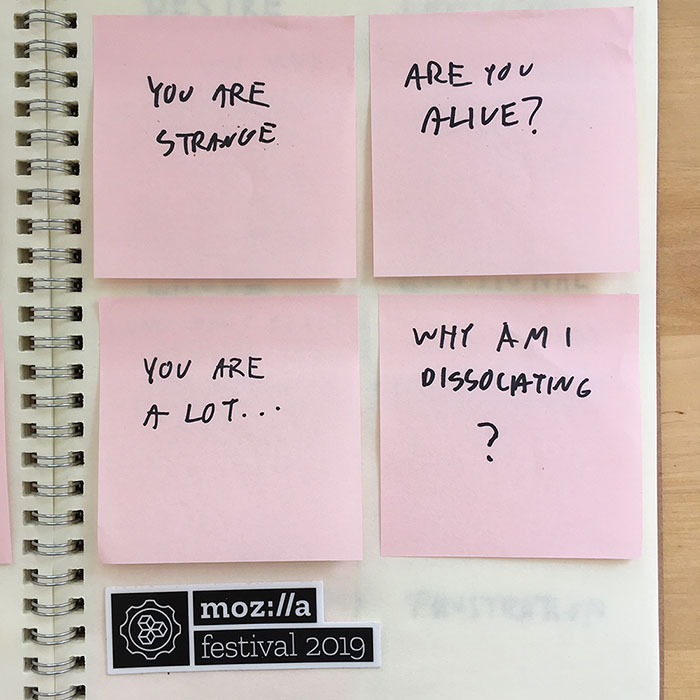 YOU ARE
STRANGE
ARE YOU
ALIVE?
YOU ARE
A LOT...
WHY AM I
DISSOCIATING
?
moz://a
festival 2019